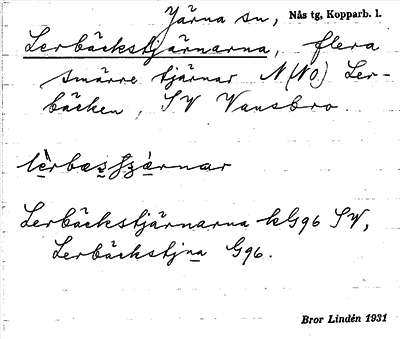 Järna sn, Nås tg, Kopparb. l.
Lerbäckstjärnarna, flera
smärre tjärnar N(NO) Ler-
bäcken, SV Vansbro.
Lerbäckstjärnarna kG96 SV,
Lerbäckstjna G96.
Bror Lindén 1931